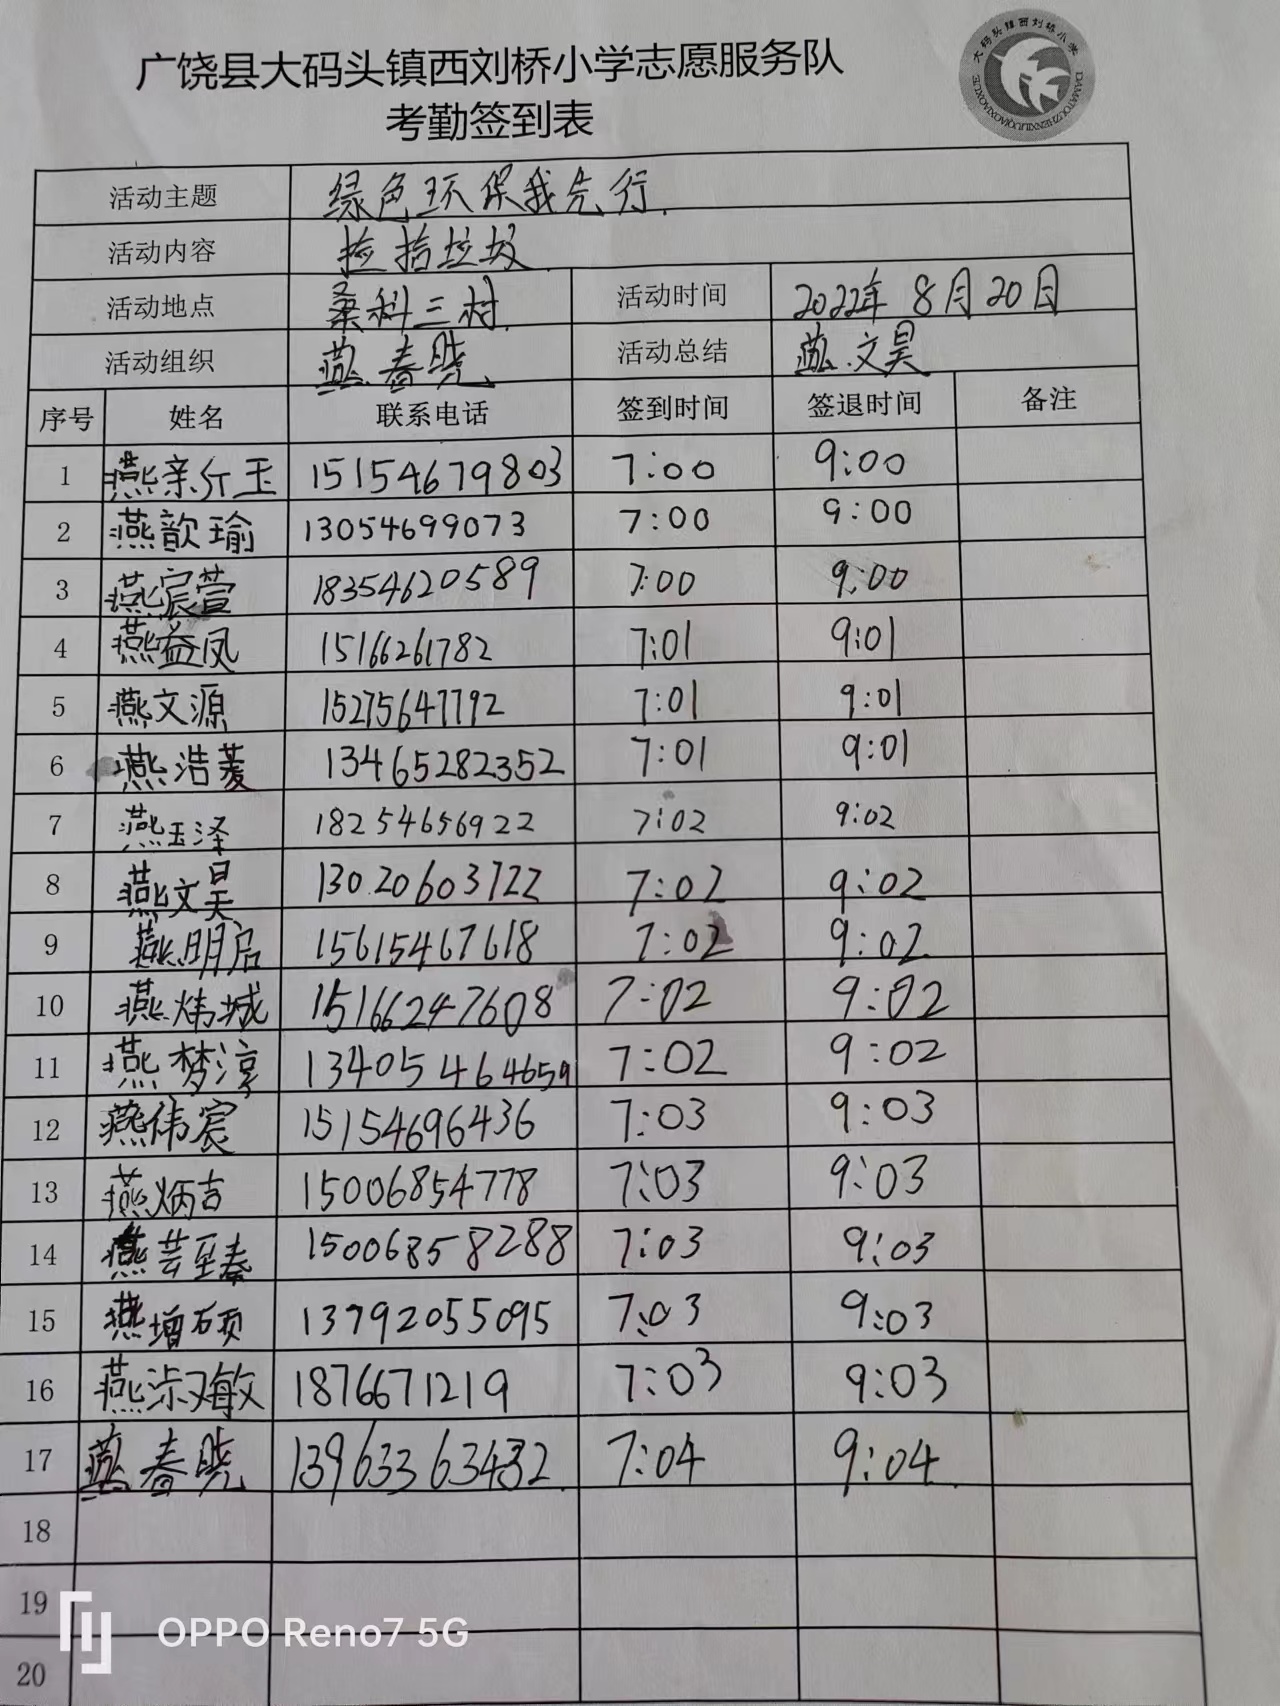 广饶县大码头镇西刘桥小学志愿服务队
考勤签到表
大码头镇西刘桥小学
DAMATOUZHENXILIUQIAOXIAOXUE
活动主题 绿色环保我先行.
活动内容 捡拾垃圾.
活动地点 桑科三村. 活动时间 2022年 8月20日
活动组织 燕春晓 活动总结 燕.文昊
序号 姓名 联系电话 签到时间 签退时间 备注
1 燕 玉 15154679803 7:00 9:00
2 燕歆瑜 13054699073 7:00 9:00
3 燕宸萱 18354620589 7:00 9:00
4 燕益凤 15166261782 7:01 9:01
5 燕文源 15275647792 7:01 9:01
6 燕浩菱 13465282352 7:01 9:01
7 燕玉泽 18254656922 7:02 9:02
8 燕文昊 130.20603722 7:02 9:02
9 燕明启 15615467618 7:02 9:02
10 燕炜城 15166247608 7:02 9:02
11 燕梦淳 13405464659 7:02 9:02
12 燕伟宸 15154696436 7:03 9:03
13 燕炳吉 15006854778 7:03 9:03
14 燕芸 15006858288 7:03 9:03
15 燕增硕 13792055095 7:03 9:03
16 燕 敏 1876671219 7:03 9:03
17 燕春晓 13963363432. 7:04 9:04.
18
19
20
OPPO Reno7 5G